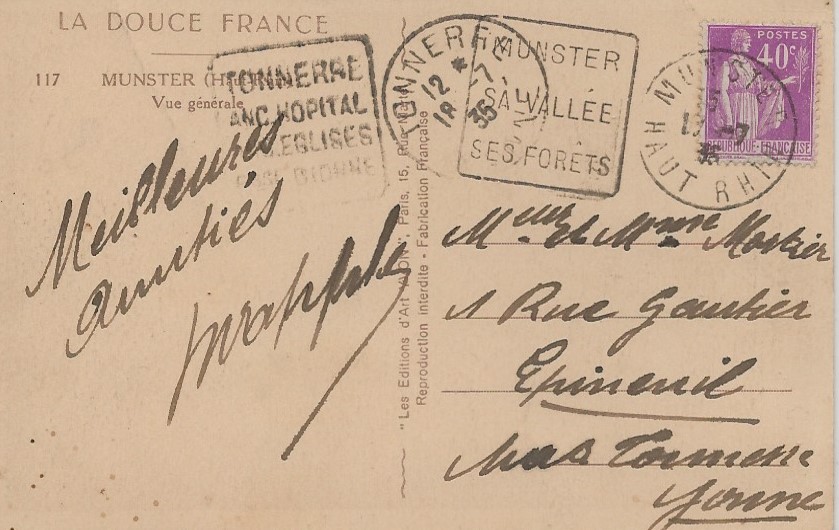 LA DOUCE FRANCE
117 MUNSTER
Vue générale
TONNERRE
ANC. HOPITAL
EGLISES
DIONNE
TONNERRE
12 *
18 7
35
MUNSTER
SA VALLÉE
SES FORÊTS
MUNSTER
HAUT RHIN
POSTES
40c
REPUBLIQUE-FRANÇAISE
Meilleures
amitiés
"Les Editions d'Art "YVON", Paris, 15, Rue Martel
Reproduction Interdite - Fabrication Française
et Mme Mortier
1 Rue Gautier
Epineuil
Yonne